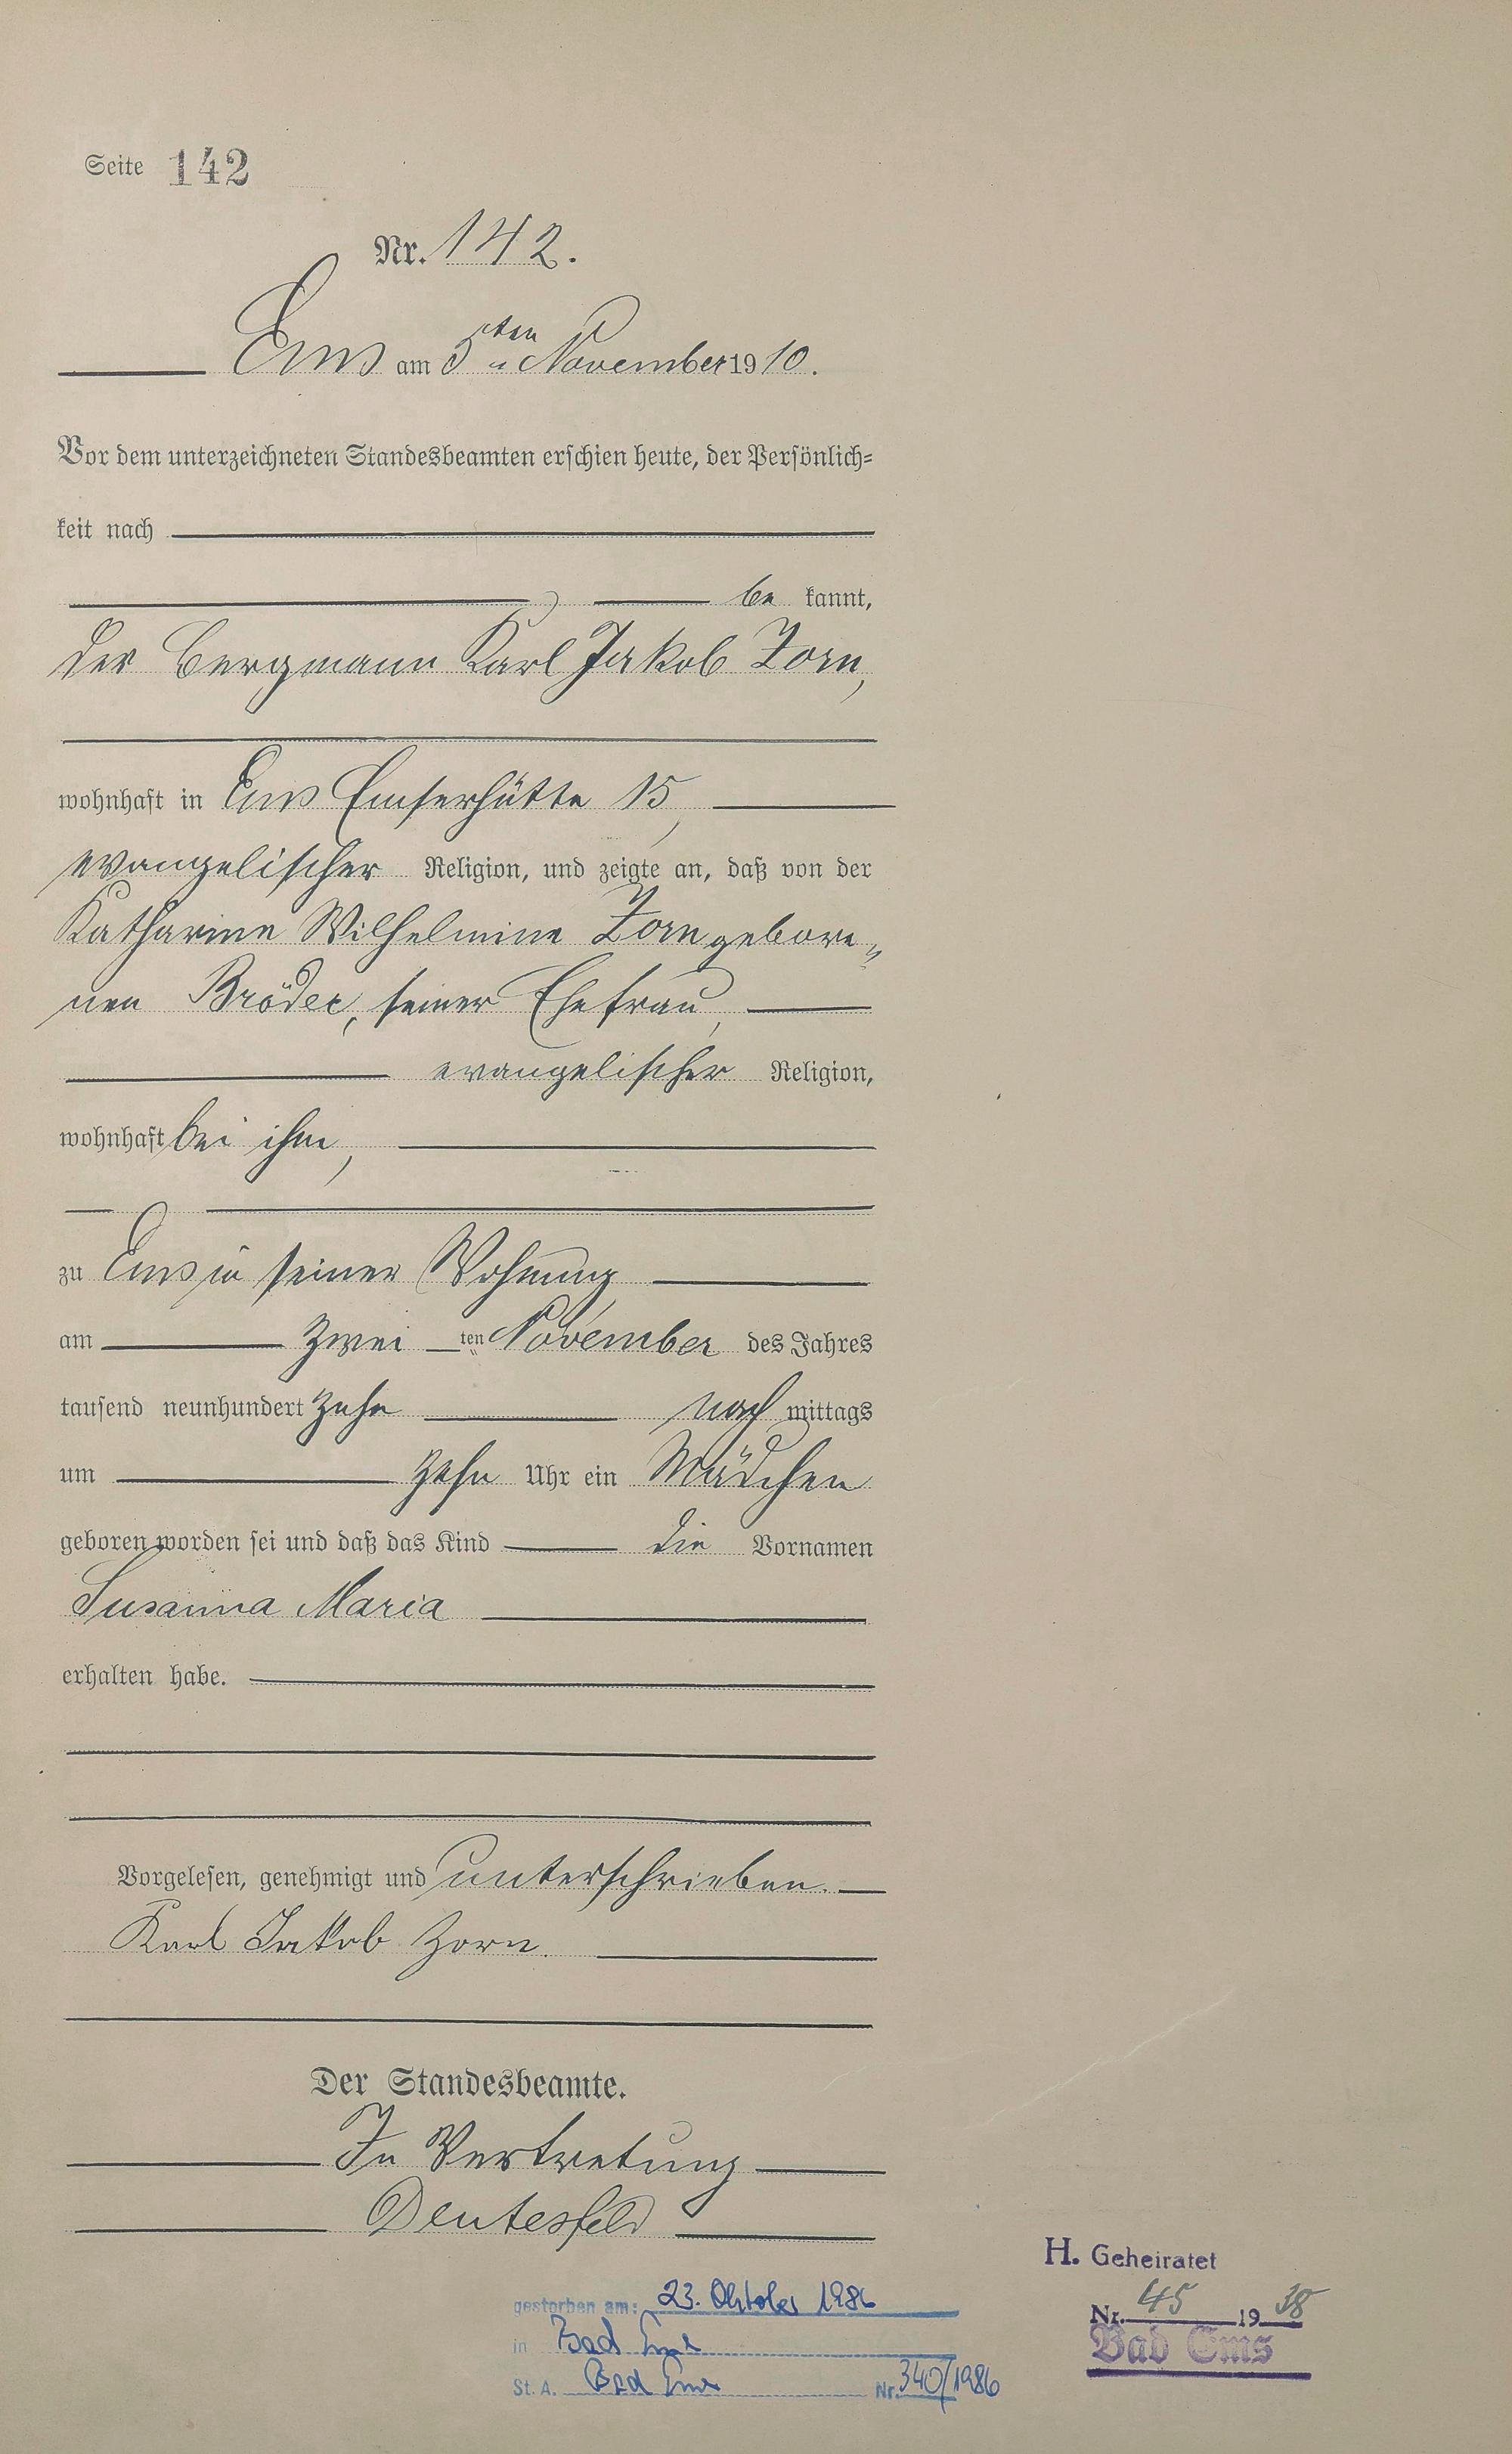 Seite 142
Nr. 142.
Ems am 5ten November 1910.
Vor dem unterzeichneten Standesbeamten erschien heute, der Persönlich=
keit nach
be kannt,
der Bergmann Karl Jakob Zorn,
wohnhaft in Ems Emserhütte 15,
evangelischer Religion, und zeigte an, daß von der
Katharine Wilhelmine Zorn gebore„
nen Bröder, seiner Ehefrau,
evangelischer Religion,
wohnhaft bei ihm,
zu Ems in seiner Wohnung,
am zwei ten November des Jahres
tausend neunhundert zehn nach mittags
um zehn Uhr ein Mädchen
geboren worden sei und daß das Kind die Vornamen
Susanna Maria
erhalten habe.
Vorgelesen, genehmigt und unterschrieben.
Karl Jakob Zorn.
Der Standesbeamte.
In Vertretung
Deutesfeld
H. Geheiratet
Nr. 45 1938
Bad Ems
gestorben am: 23. Oktober 1986
in Bad Ems
St. A. Bad Ems Nr. 340/1986